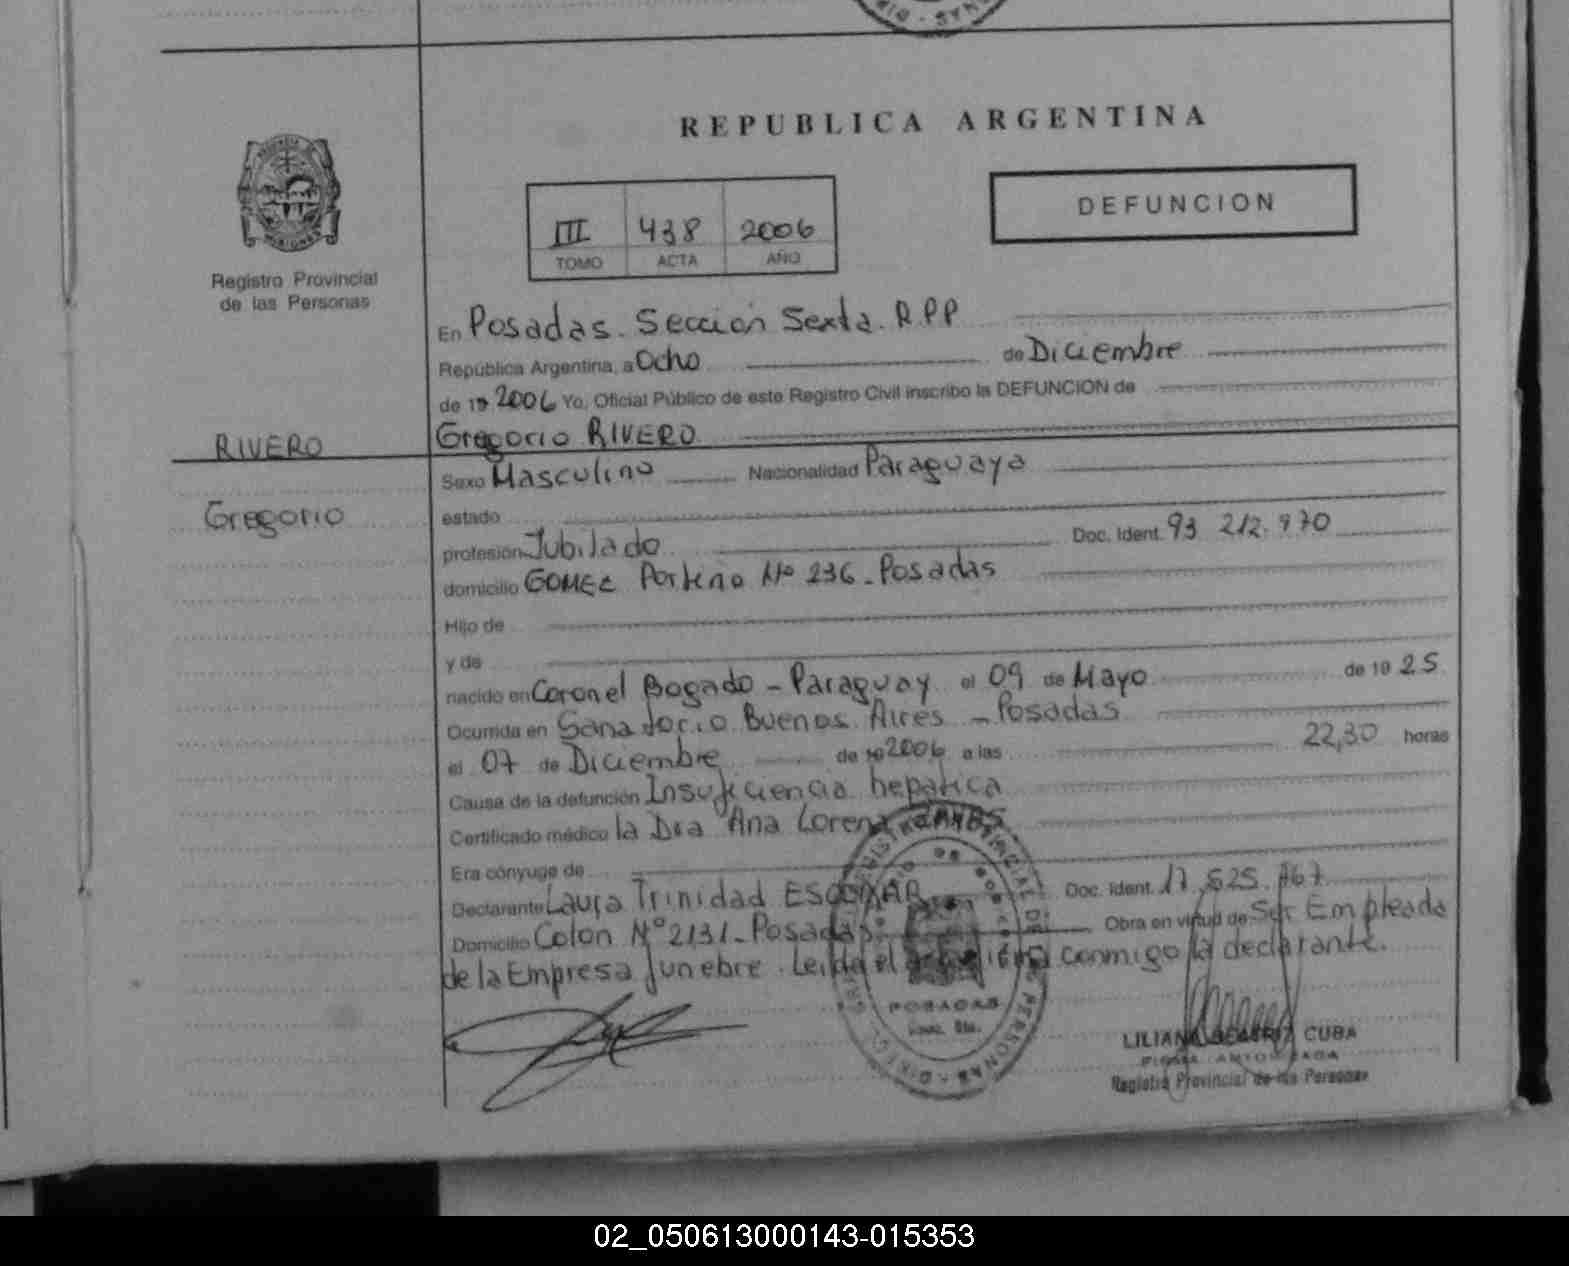 REPUBLICA ARGENTINA
DEFUNCION
III 438 2006
TOMO ACTA AÑO
Registro Provincial
de las Personas
En Posadas. Sección Sexta. R.P.P
República Argentina, a Ocho de Diciembre
de 19 2006 Yo, Oficial Público de este Registro Civil inscribo la DEFUNCION de
RIVERO
Gregorio RIVERO
Sexo Masculino Nacionalidad Paraguaya
Gregorio
estado
profesión Jubilado Doc. Ident. 93 212.970
domicilio GOMEZ Porteño Nº 236-Posadas
Hijo de
y de
nacido en Coronel Bogado - Paraguay el 09 de Mayo de 19 25
Ocurrida en Sanatorio Buenos Aires - Posadas
el 07 de Diciembre de 19 2006 a las 22,30 horas
Causa de la defunción Insuficiencia hepatica
Certificado médico la Dra Ana Lorena
Era cónyuge de
Declarante Laura Trinidad ESCOBAR Doc. Ident. 17.525.767
Domicilio Colon Nº 2131-Posadas Obra en virtud de Ser Empleada
de la Empresa funebre. Leida el conmigo la declarante.
POSADAS
LILIANA BEATRIZ CUBA
FIRMA AUTORIZADA
Registro Provincial de las Personas
02_050613000143-015353